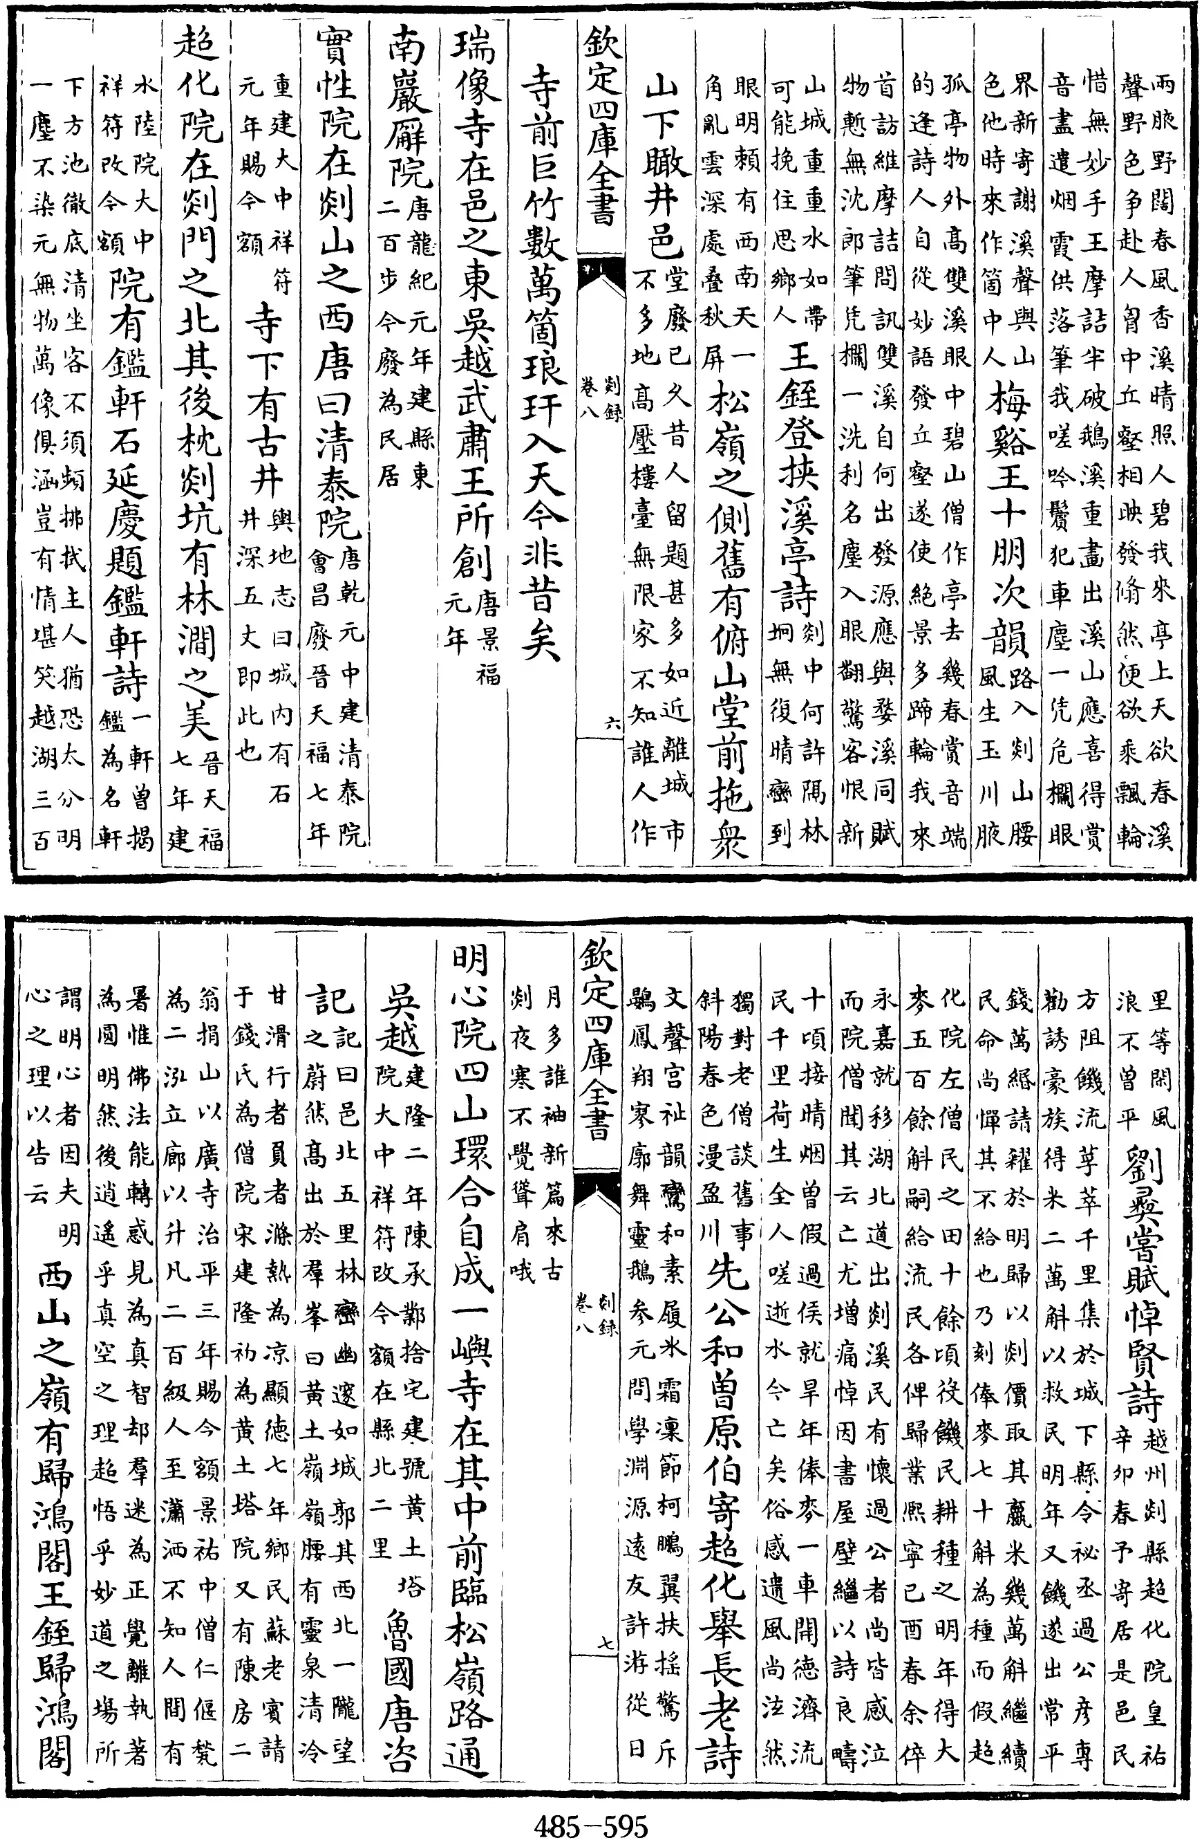 兩腋野闊春風香溪晴照人碧我來亭上天欲春溪
聲野色爭赴人胷中丘壑相映發翛然便欲乘飄輪
惜無妙手王摩詰半破鵝溪重畫出溪山應喜得賞
音盡遣烟霞供落筆我嗟吟鬢犯車塵一凭危欄眼
界新寄謝溪聲與山色他時來作箇中人梅谿王十朋次韻路入剡山腰風生玉川腋
孤亭物外高雙溪眼中碧山僧作亭去幾春賞音端
的逢詩人自從妙語發丘壑遂使絶景多蹄輪我來
首訪維摩詰問訊雙溪自何出發源應與婺溪同賦
物慙無沈郎筆凭欄一洗利名塵入眼翻驚客恨新
山城重重水如帶可能挽住思鄉人王銍登挾溪亭詩剡中何許隔林坰無復晴巒到
眼明頼有西南天一角亂雲深處叠秋屏松嶺之側舊有俯山堂前拖衆
山下瞰井邑堂廢已久昔人留題甚多如近離城市不多地髙壓樓臺無限家不知誰人作
欽定四庫全書
剡録
卷八
六
寺前巨竹數萬箇琅玕入天今非昔矣
瑞像寺在邑之東吳越武肅王所創唐景福元年
南巖辟院唐龍紀元年建縣東二百步今廢為民居
實性院在剡山之西唐曰清泰院唐乾元中建清泰院會昌廢晉天福七年
重建大中祥符元年賜今額寺下有古井輿地志曰城内有石井深五丈即此也
超化院在剡門之北其後枕剡坑有林澗之美晉天福七年建
水陸院大中祥符改今額院有鑑軒石延慶題鑑軒詩一軒曽揭鑑為名軒
下方池徹底清坐客不須頻拂拭主人猶恐太分明
一塵不染元無物萬像俱涵豈有情堪笑越湖三百
里等閑風浪不曽平劉彛嘗賦悼賢詩越州剡縣超化院皇祐辛卯春予寄居是邑民
方阻饑流莩萃千里集於城下縣令祕丞過公彦專
勸誘豪族得米二萬斛以救民明年又饑遂出常平
錢萬緡請糴於明歸以剡價取其贏米幾萬斛繼續
民命尚憚其不給也乃刻俸麥七十斛為種而假超
化院左僧民之田十餘頃役饑民耕種之明年得大
麥五百餘斛嗣給流民各俾歸業熙寧已酉春余倅
永嘉就移湖北道出剡溪民有懷過公者尚皆感泣
而院僧聞其云亡尤增痛悼因書屋壁繼以詩良疇
十頃接晴烟曽假過侯就旱年俸麥一車開德濟流
民千里荷生全人嗟逝水今亡矣俗感遺風尚泫然
獨對老僧談舊事斜陽春色漫盈川先公和曽原伯寄超化舉長老詩
文聲宫祉韻鸞和素履氷霜凜節柯鵬翼扶揺驚斥
鷃鳳翔寥廓舞靈鵝參元問學淵源逺友許游從日
欽定四庫全書
剡録
卷八
七
月多誰袖新篇來古剡夜寒不覺聳肩哦
明心院四山環合自成一嶼寺在其中前臨松嶺路通
吳越建隆二年陳承鄴捨宅建號黄土塔院大中祥符改今額在縣北二里魯國唐咨
記記曰邑北五里林巒幽邃如城郭其西北一隴望之蔚然髙出於羣峯曰黄土嶺嶺腰有靈泉清冷
甘滑行者員者滌熱為凉顯德七年鄉民蘇老賓請
于錢氏為僧院宋建隆初為黄土塔院又有陳房二
翁捐山以廣寺治平三年賜今額景祐中僧仁偃甃
為二泓立廊以升凡二百級人至瀟洒不知人間有
暑惟佛法能轉惑見為真智却羣迷為正覺離執著
為圓明然後逍遙乎真空之理超悟乎妙道之塲所
謂明心者因夫明心之理以告云西山之嶺有歸鴻閣王銍歸鴻閣
485-595